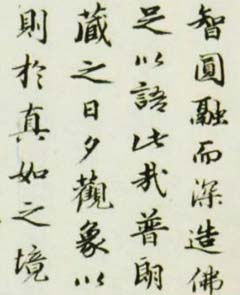 智圓融而深造佛
足以語此哉普朗
藏之日夕觀象以
則於真如之境